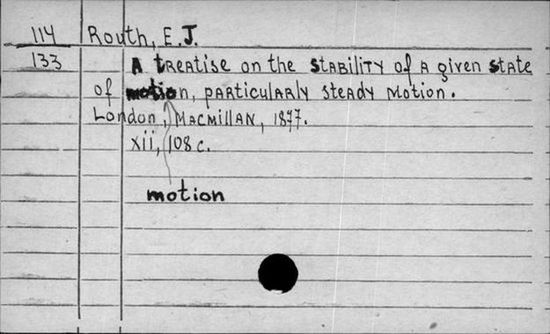 114 Routh, E.J.
133 A treatise on the stability of a given state
of motion, particularly steady motion.
London, Macmillan, 1877.
xii, 108 c.
motion